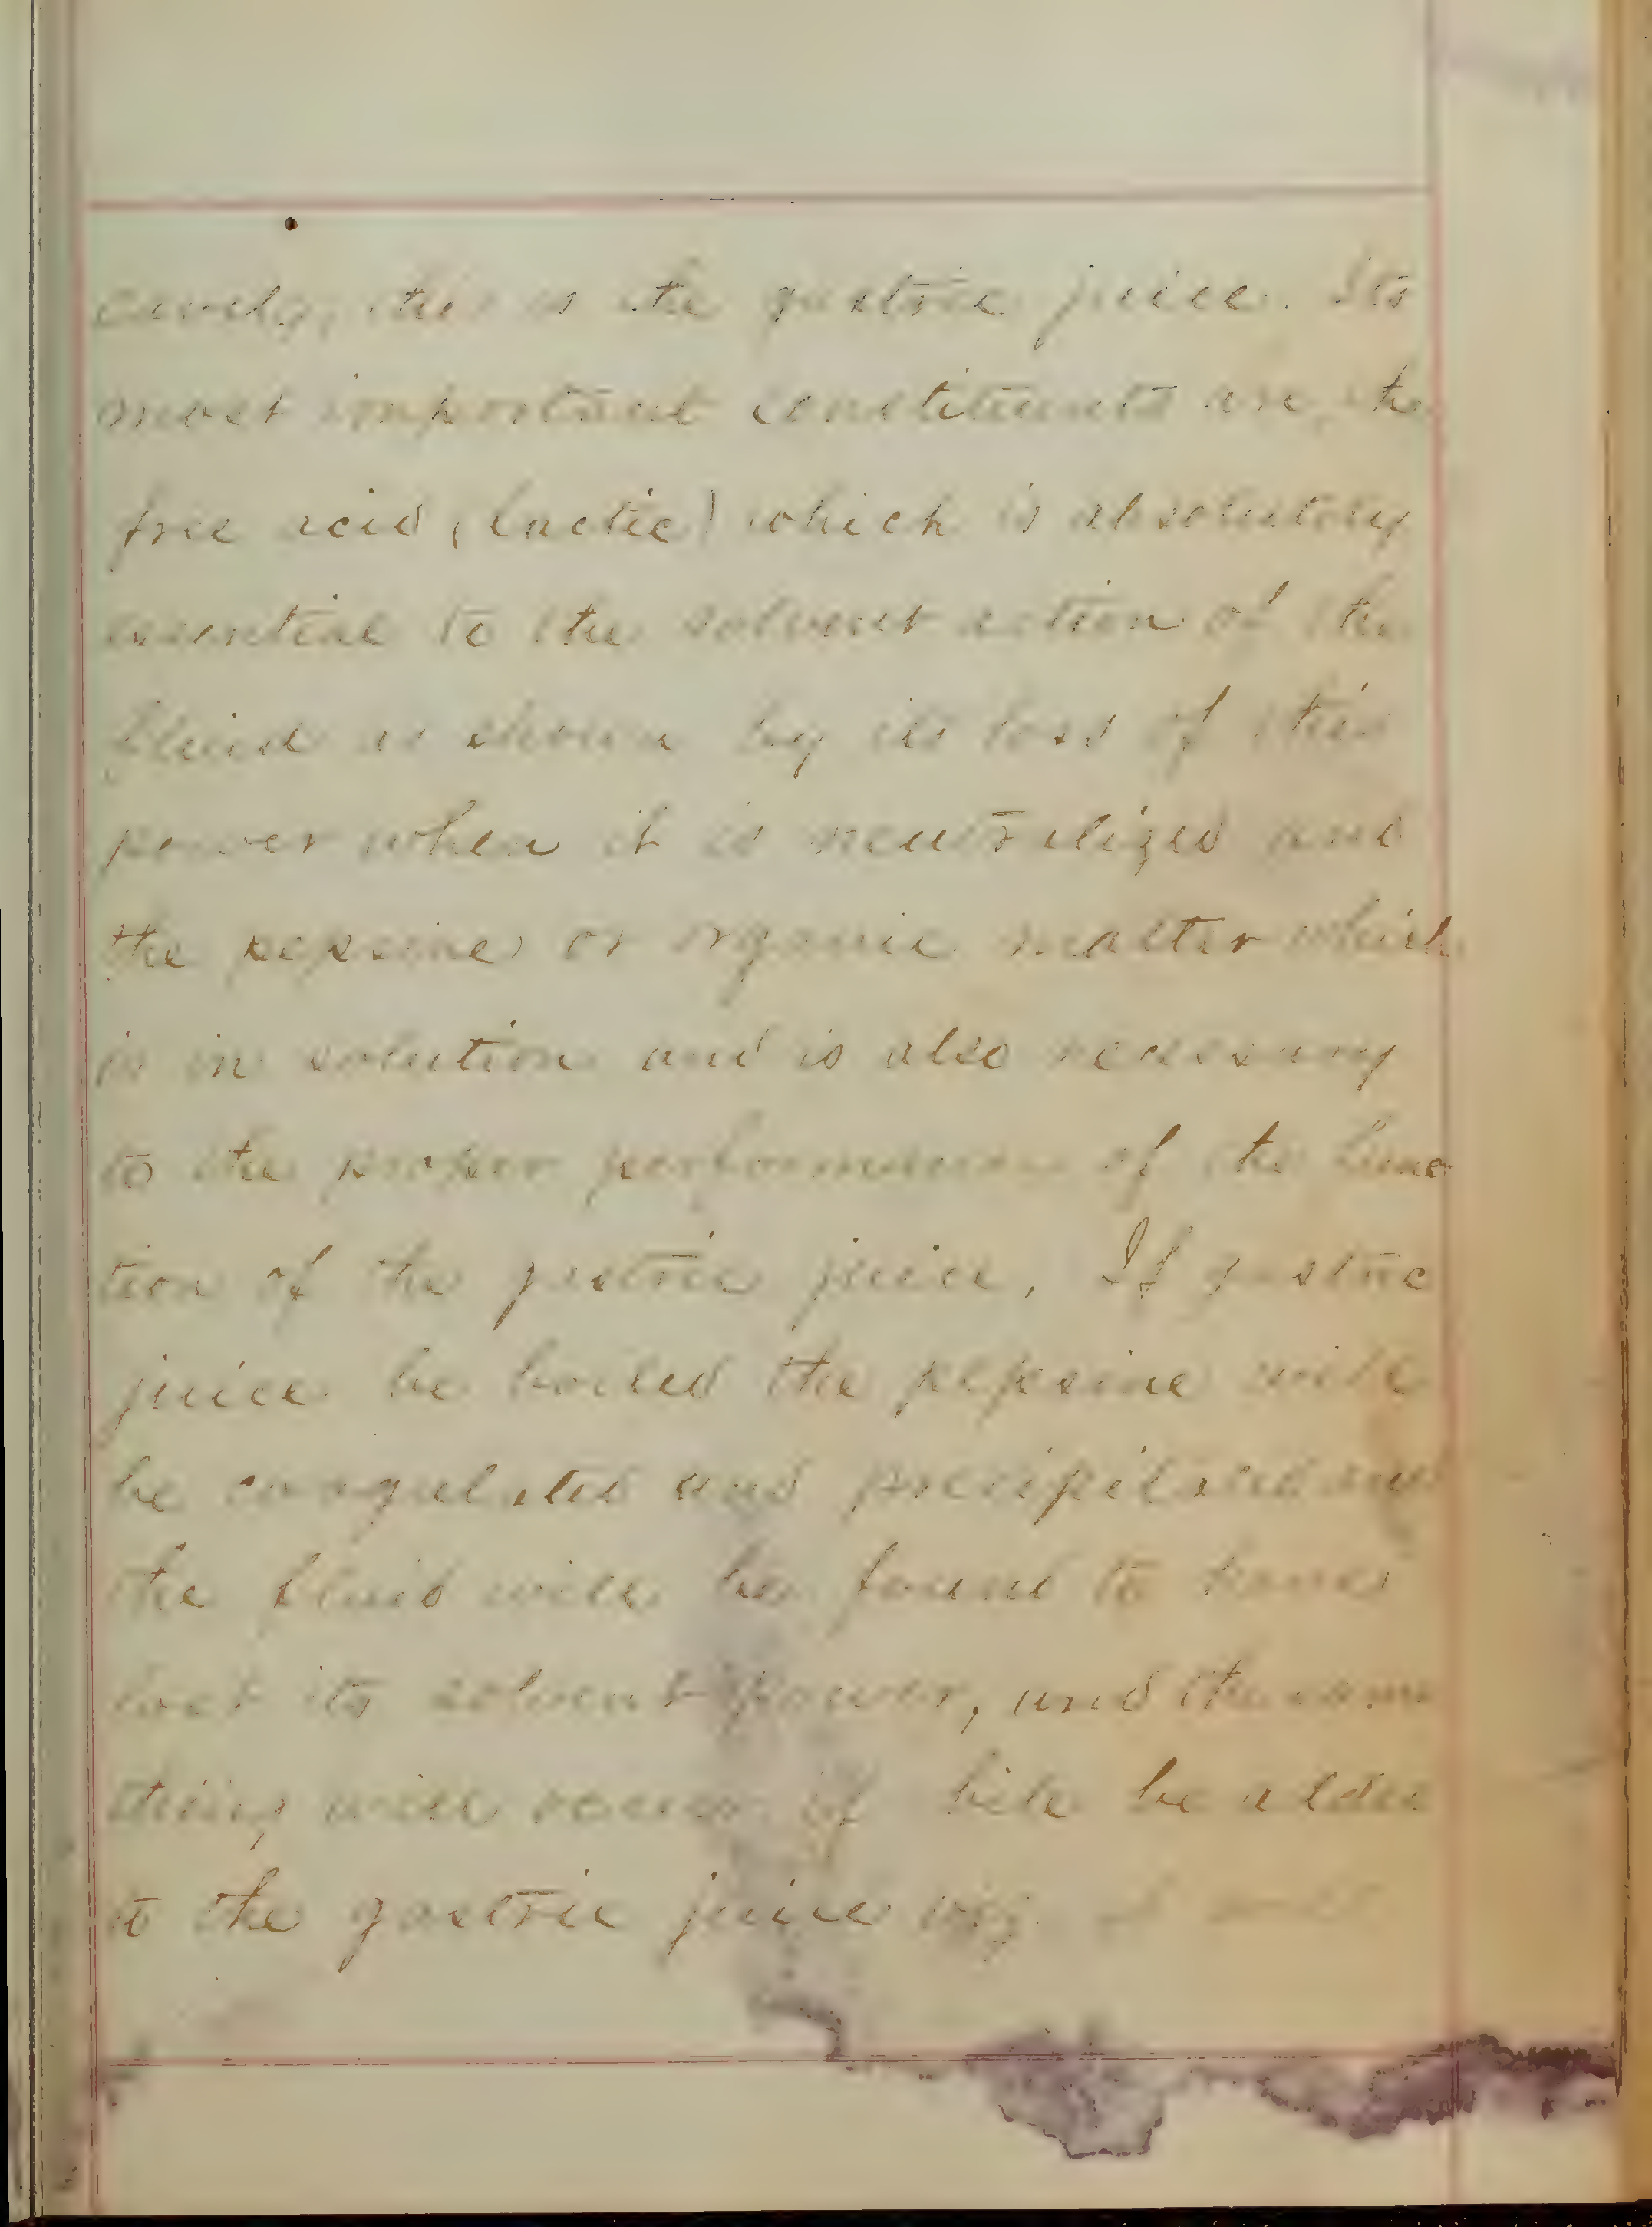 cavity, this is the gastric juice. Its
most important constituents are, the
free acid (lactic) which is absolutely
essential to the solvent action of the
fluid as shown by its loss of this
power when it is neutralized and
the pepsine, or organic matter which
is in solution and is also necessary
to the proper performance of the func
tion of the gastric juice. If gastric
juice be boiled the pepsine will
be coagulated and precipitated and
the fluid will be found to have
lost its solvent power, and the same
thing will occur if bile be added
to the gastric juice